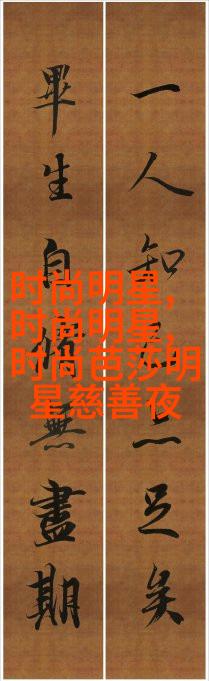 时尚明星,
时尚明星,
时尚芭莎明
星慈善夜
一人知己亦足矣
畢生自修無盡期